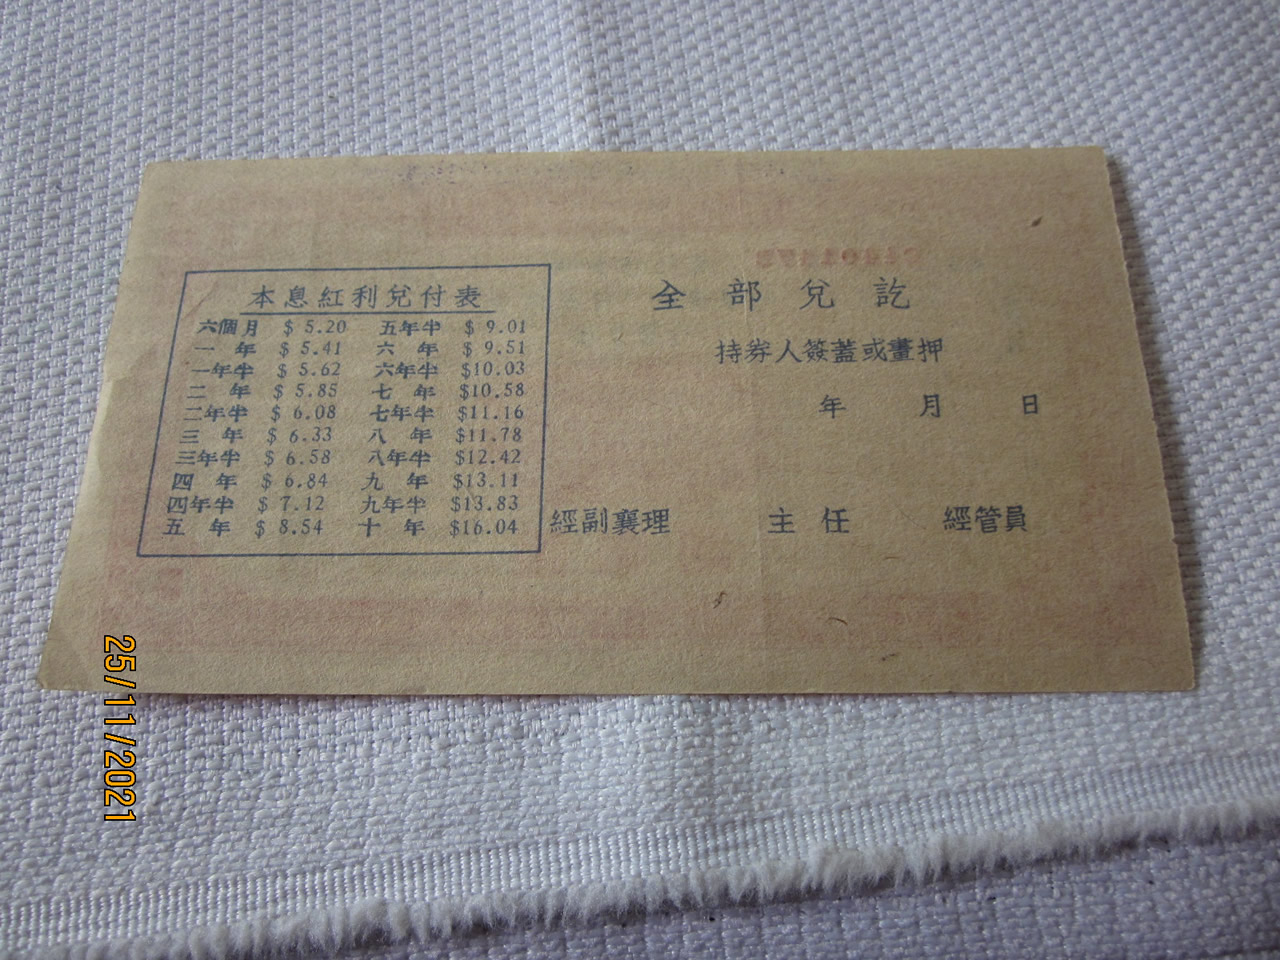 本息紅利兌付表
六個月 $ 5.20 五年半 $ 9.01
一年 $ 5.41 六年 $ 9.51
一年半 $ 5.62 六年半 $10.03
二年 $ 5.85 七年 $10.58
二年半 $ 6.08 七年半 $11.16
三年 $ 6.33 八年 $11.78
三年半 $ 6.58 八年半 $12.42
四年 $ 6.84 九年 $13.11
四年半 $ 7.12 九年半 $13.83
五年 $ 8.54 十年 $16.04
全部兌訖
持券人簽蓋或畫押
年 月 日
經副襄理 主任 經管員
25/11/2021